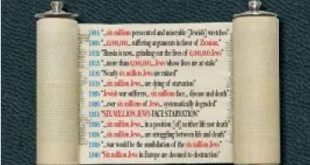 "...six millions persecuted and miserable [Jewish] wretches"
"...6,000,000... suffering arguments in favor of Zionism."
"Russia is now... grinding out the lives of 6,000,000 Jews"
"...more than 6,000,000 Jews whose lives are at stake"
"Nearly six million Jews are ruined"
"...six million Jews, are dying of starvation"
"Jewish war sufferers... six millions face... disease and death"
"...over six millions of Jews... systematically degraded"
"SIX MILLION JEWS FACE STARVATION"
"...six million Jews, in a position [of] neither life nor death"
"...six million Jews, are struggling between life and death"
"...war would be the annihilation of the six million Jews"
"Six million Jews in Europe are doomed to destruction"